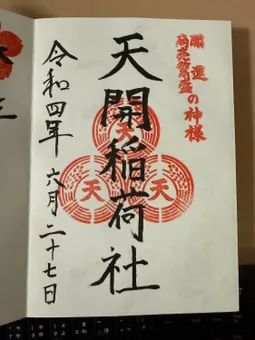 開運
商売繁盛の神様
天開稲荷社
令和四年 六月二十七日
天
天
天